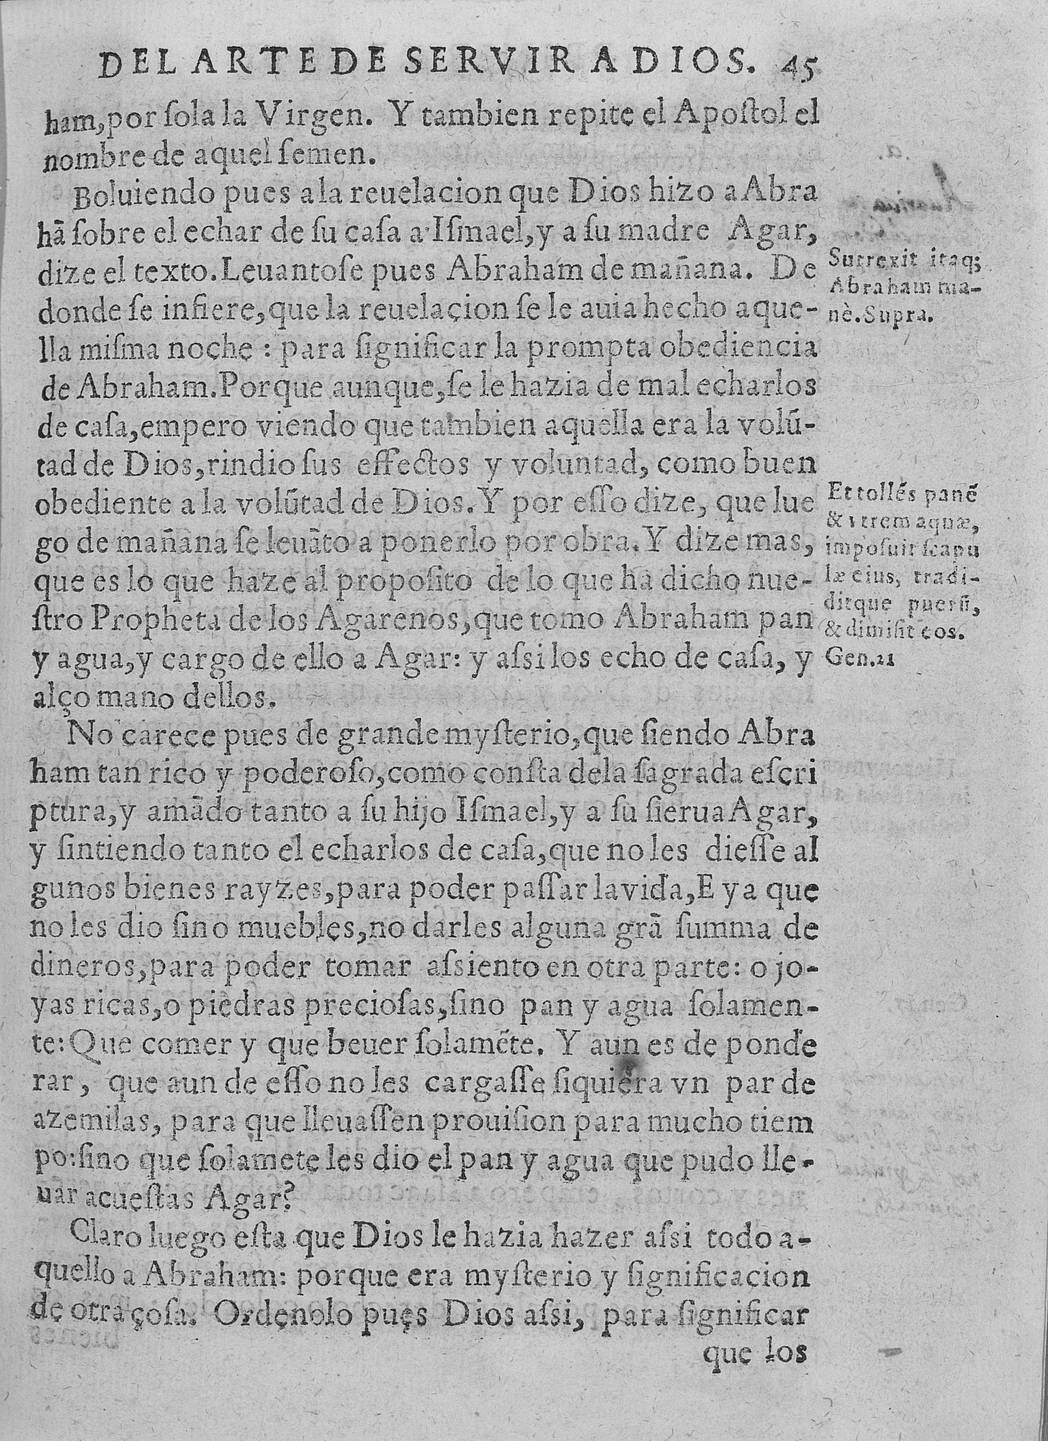 DEL ARTE DE SERVIR A DIOS. 45
ham, por ſola la Virgen. Y tambien repite el Apoſtol el
nombre de aquel ſemen.
Boluiendo pues a la reuelacion que Dios hizo a Abra
hã ſobre el echar de ſu caſa a Iſmael, y a ſu madre Agar,
dize el texto. Leuantoſe pues Abraham de mañana. De
donde ſe infiere, que la reuelacion ſe le auia hecho aque-
lla miſma noche: para ſignificar la prompta obediencia
de Abraham. Porque aunque, ſe le hazia de mal echarlos
de caſa, empero viendo que tambien aquella era la volũ-
tad de Dios, rindio ſus effectos y voluntad, como buen
obediente a la volũtad de Dios. Y por eſſo dize, que lue
go de mañana ſe leuãto a ponerlo por obra. Y dize mas,
que es lo que haze al propoſito de lo que ha dicho nue-
ſtro Propheta de los Agarenos, que tomo Abraham pan
y agua, y cargo de ello a Agar: y aſsi los echo de caſa, y
alço mano dellos.
No carece pues de grande myſterio, que ſiendo Abra
ham tan rico y poderoſo, como conſta dela ſagrada eſcri
ptura, y amãdo tanto a ſu hijo Iſmael, y a ſu ſierua Agar,
y ſintiendo tanto el echarlos de caſa, que no les dieſſe al
gunos bienes rayzes, para poder paſſar la vida, E ya que
no les dio ſino muebles, no darles alguna grã ſumma de
dineros, para poder tomar aſsiento en otra parte: o jo-
yas ricas, o piedras precioſas, ſino pan y agua ſolamen-
te: Que comer y que beuer ſolamẽte. Y aun es de ponde
rar, que aun de eſſo no les cargaſſe ſiquiera vn par de
azemilas, para que lleuaſſen prouiſion para mucho tiem
po: ſino que ſolamete les dio el pan y agua que pudo lle-
uar acueſtas Agar?
Claro luego eſta que Dios le hazia hazer aſsi todo a-
quello a Abraham: porque era myſterio y ſignificacion
de otra çoſa. Ordenolo pues Dios aſsi, para ſignificar
que los
Surrexit itaq;
Abraham ma-
nè. Supra.
Et tollẽs panẽ
& vtrem aquæ,
impoſuit ſcapu
læ eius, tradi-
ditque puerũ,
& dimiſit eos.
Gen. 21